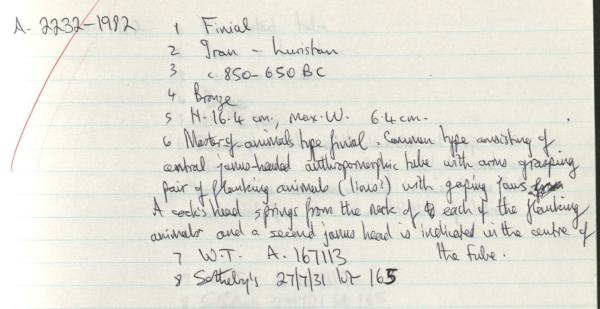 A. 2232-1982 1 Finial
2 Iran - Luristan
3 c. 850-650 BC
4 Bronze
5 H. 16.4 cm., max. W. 6.4 cm.
6 Master of animals type finial. Common type consisting of
central janus-headed anthropomorphic tube with arms grasping
pair of flanking animals (lions?) with gaping jaws
A cock's head springs from the neck of each of the flanking
animals and a second janus head is indicated in the centre of
the tube.
7 W.T. A. 167113
8 Sotheby's 27/7/31 lot 165